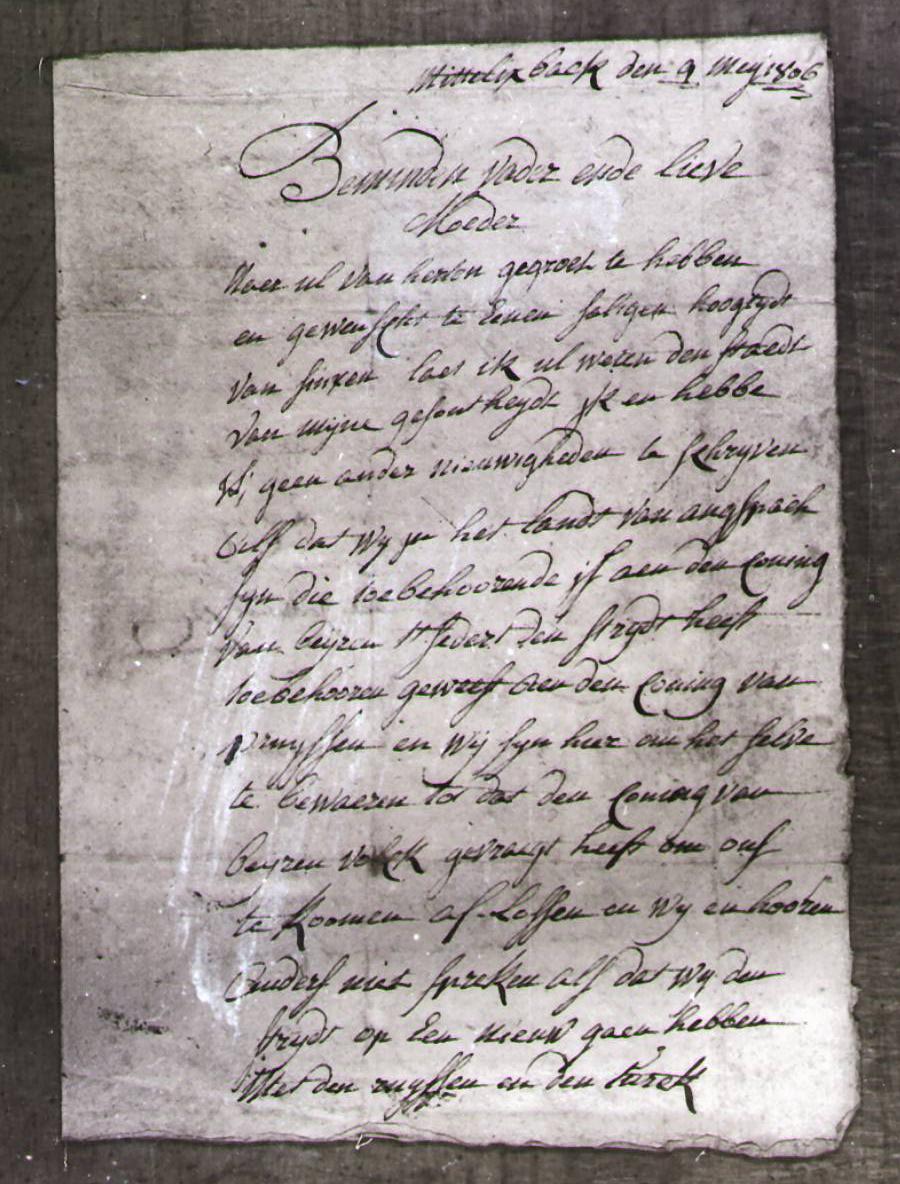 Mittelexback den 9 Mey 1806
Beminden vader ende lieve
Moeder
Naer ul van herten gegroet te hebben
en gewenscht te Eenen saligen hoogtydt
van sinxen laet ik ul weten den staedt
van myne gesontheydt jk en hebbe
ul geen ander nieuwigheden te schryven
als dat wy jn het landt van anschpach
syn die toebehoorende js aen den coning
van beyren tsedert den strydt heeft
toebehooren geweest aen den coning van
pruyssen en wij syn hier om het selve
te bewaeren tot dat den coning van
beyren volck gevraegt heeft om ons
te koomen af-lossen en wy en hooren
anders niet spreken als dat wy den
strydt op Een nieuw gaen hebben
Met den ruyssen en den turck